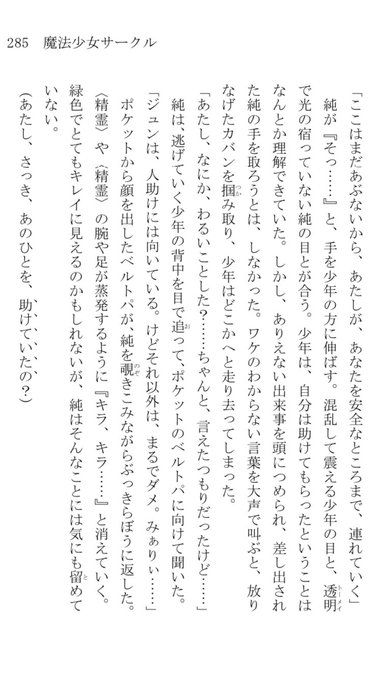 285　魔法少女サークル
「ここはまだあぶないから、あたしが、あなたを安全なところまで、連れていく」
　純が『そっ……』と、手を少年の方に伸ばす。混乱して震える少年の目と、透明
で光の宿っていない純の目とが合う。少年は、自分は助けてもらったということは
なんとか理解できていた。しかし、ありえない出来事を頭につめられ、差し出され
た純の手を取ろうとは、しなかった。ワケのわからない言葉を大声で叫ぶと、放り
なげたカバンを掴み取り、少年はどこかへと走り去ってしまった。
「あたし、なにか、わるいことした？……ちゃんと、言えたつもりだったけど……」
　純は、逃げていく少年の背中を目で追って、ポケットのベルトパに向けて聞いた。
「ジュンは、人助けには向いている。けどそれ以外は、まるでダメ。みぁりぃ……」
　ポケットから顔を出したベルトパが、純を覗きこみながらぶっきらぼうに返した。
〈精霊〉や〈精霊〉の腕や足が蒸発するように『キラ、キラ……』と消えていく。
緑色でとてもキレイに見えるのかもしれないが、純はそんなことには気にも留めて
いない。
（あたし、さっき、あのひとを、助けていたの？）
トーメイ
つか
お
のぞ
と